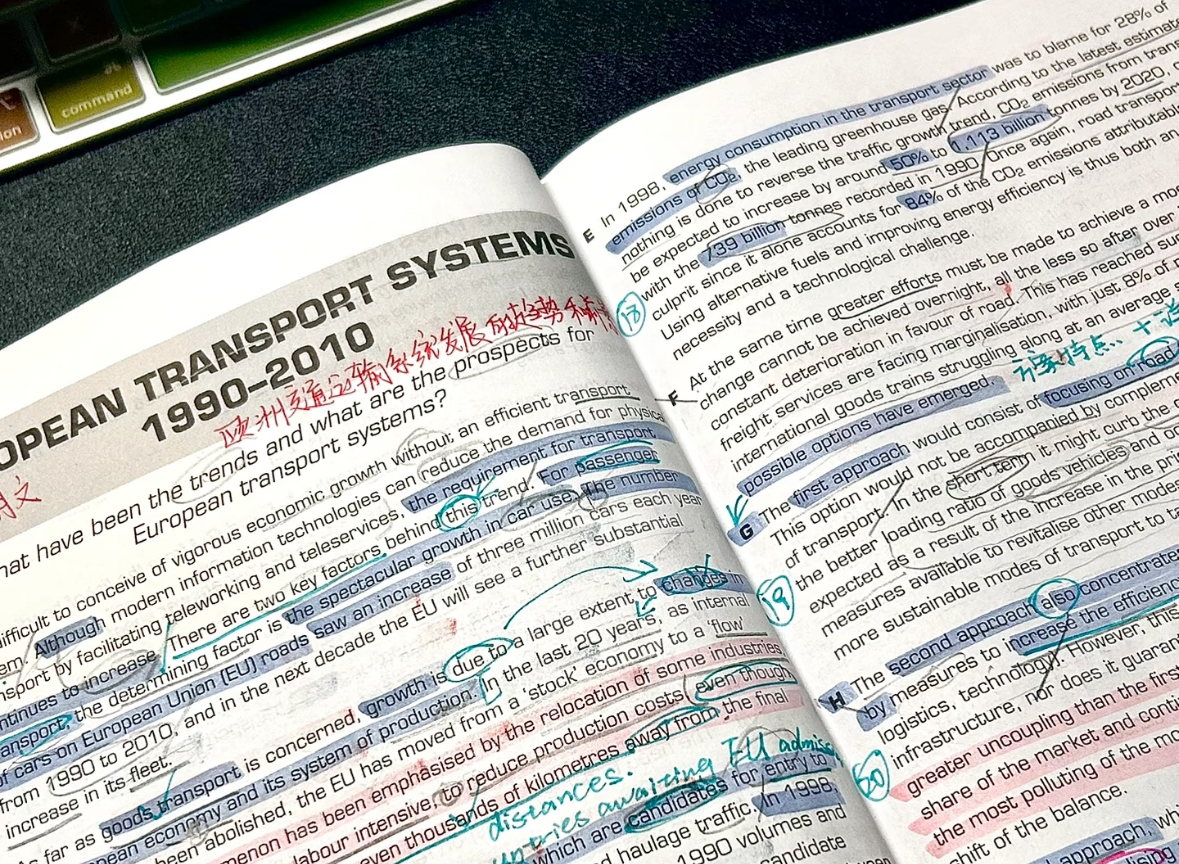 command
OPEAN TRANSPORT SYSTEMS
1990–2010
欧洲交通运输系统发展的趋势和前
hat have been the trends and what are the prospects for
European transport systems?
ifficult to conceive of vigorous economic growth without an efficient transport
em. Although modern information technologies can reduce the demand for physica
nsport by facilitating teleworking and teleservices, the requirement for transport
ntinues to increase. There are two key factors behind this trend. For passenger
ansport, the determining factor is the spectacular growth in car use. The number
of cars on European Union (EU) roads saw an increase of three million cars each year
from 1990 to 2010, and in the next decade the EU will see a further substantial
increase in its fleet.
As far as goods transport is concerned, growth is due to a large extent to changes in
pean economy and its system of production. In the last 20 years, as internal
been abolished, the EU has moved from a 'stock' economy to a 'flow'
menon has been emphasised by the relocation of some industries
labour intensive, to reduce production costs, even though
even thousands of kilometres away from the final
distances.
EU admiss
awaiting
which are candidates for entry to
haulage traffic. In 1998
1990 volumes and
candidate
E In 1998, energy consumption in the transport sector was to blame for 28% of
emissions of CO₂, the leading greenhouse gas. According to the latest estimate
nothing is done to reverse the traffic growth trend, CO₂ emissions from trans
be expected to increase by around 50% to 1,113 billion tonnes by 2020,
with the 739 billion tonnes recorded in 1990. Once again, road transpor
culprit since it alone accounts for 84% of the CO₂ emissions attributabl
Using alternative fuels and improving energy efficiency is thus both an
necessity and a technological challenge.
18
F At the same time greater efforts must be made to achieve a mo
change cannot be achieved overnight, all the less so after over
constant deterioration in favour of road. This has reached su
freight services are facing marginalisation, with just 8% of
international goods trains struggling along at an average
possible options have emerged.
G The first approach would consist of focusing on road
This option would not be accompanied by complem
of transport. In the short term it might curb the
the better loading ratio of goods vehicles and o
expected as a result of the increase in the pri
measures available to revitalise other modes
more sustainable modes of transport to ta
19
H The second approach also concentrate
by measures to increase the efficienc
logistics, technology. However, this
infrastructure, nor does it guaran
greater uncoupling than the firs
share of the market and conti
the most polluting of the mo
shift of the balance.
20
approach,